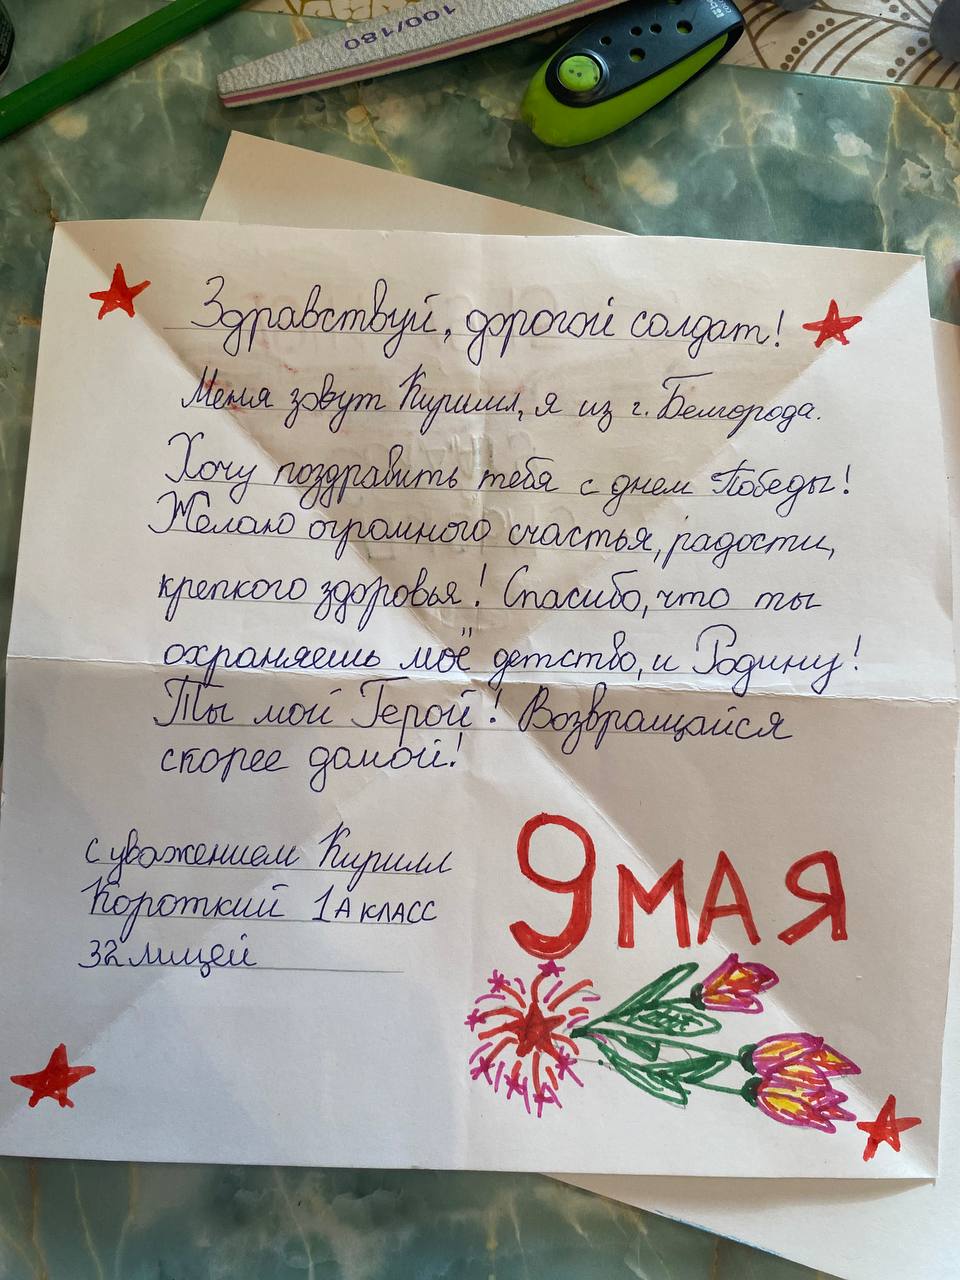 100/180
Здравствуй, дорогой солдат!
Меня зовут Кирилл, я из г. Белгорода.
Хочу поздравить тебя с днем Победы!
Желаю огромного счастья, радости,
крепкого здоровья! Спасибо, что ты
охраняешь моё детство, и Родину!
Ты мой Герой! Возвращайся
скорее домой!
с уважением Кирилл
Короткий 1А класс
32 лицей
9 МАЯ